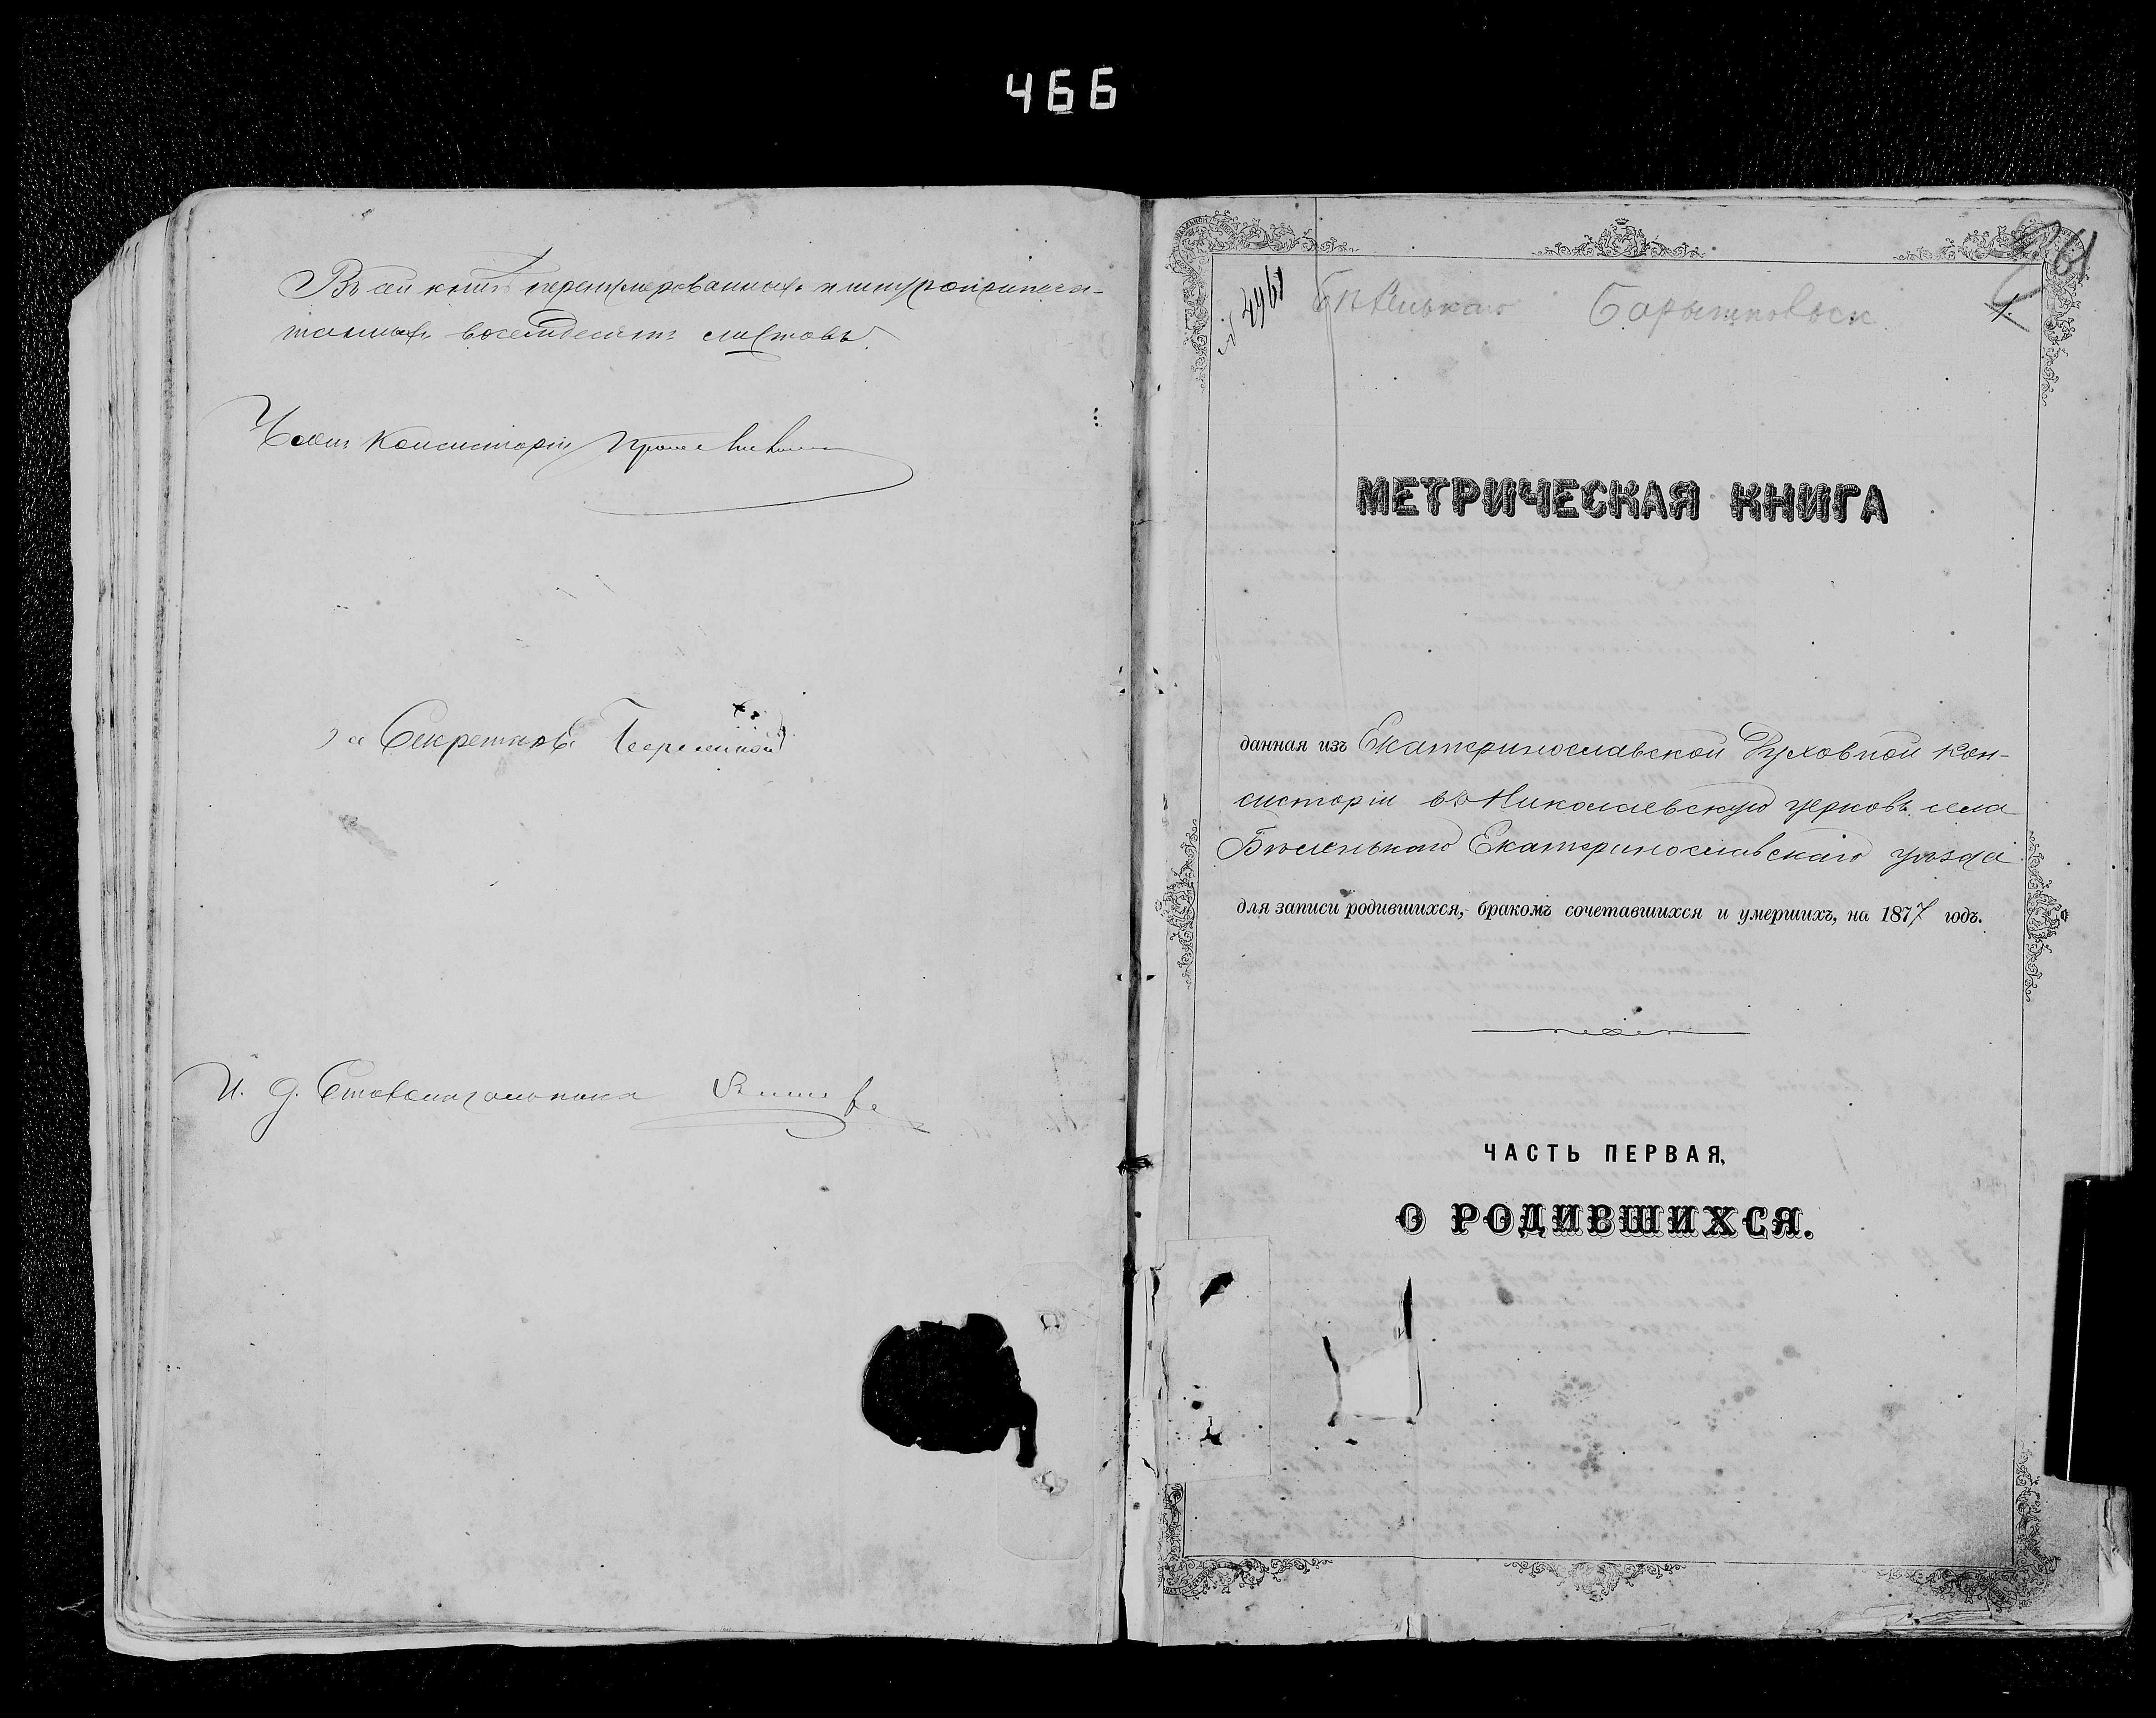 466
Въ сей книгѣ перенумерованныхъ и шнуроприпеча-
танныхъ восемьдесятъ листовъ.
Членъ Консисторіи
за Секретаря
И. д. Столоначальника
№ 4961
Бѣленькаго
1.
МЕТРИЧЕСКАЯ КНИГА
данная изъ Екатеринославской Духовной Кон-
систоріи въ Николаевскую церковь села
Бѣленькаго Екатеринославскаго уѣзда
для записи родившихся, бракомъ сочетавшихся и умершихъ, на 1877 годъ.
ЧАСТЬ ПЕРВАЯ,
О РОДИВШИХСЯ.